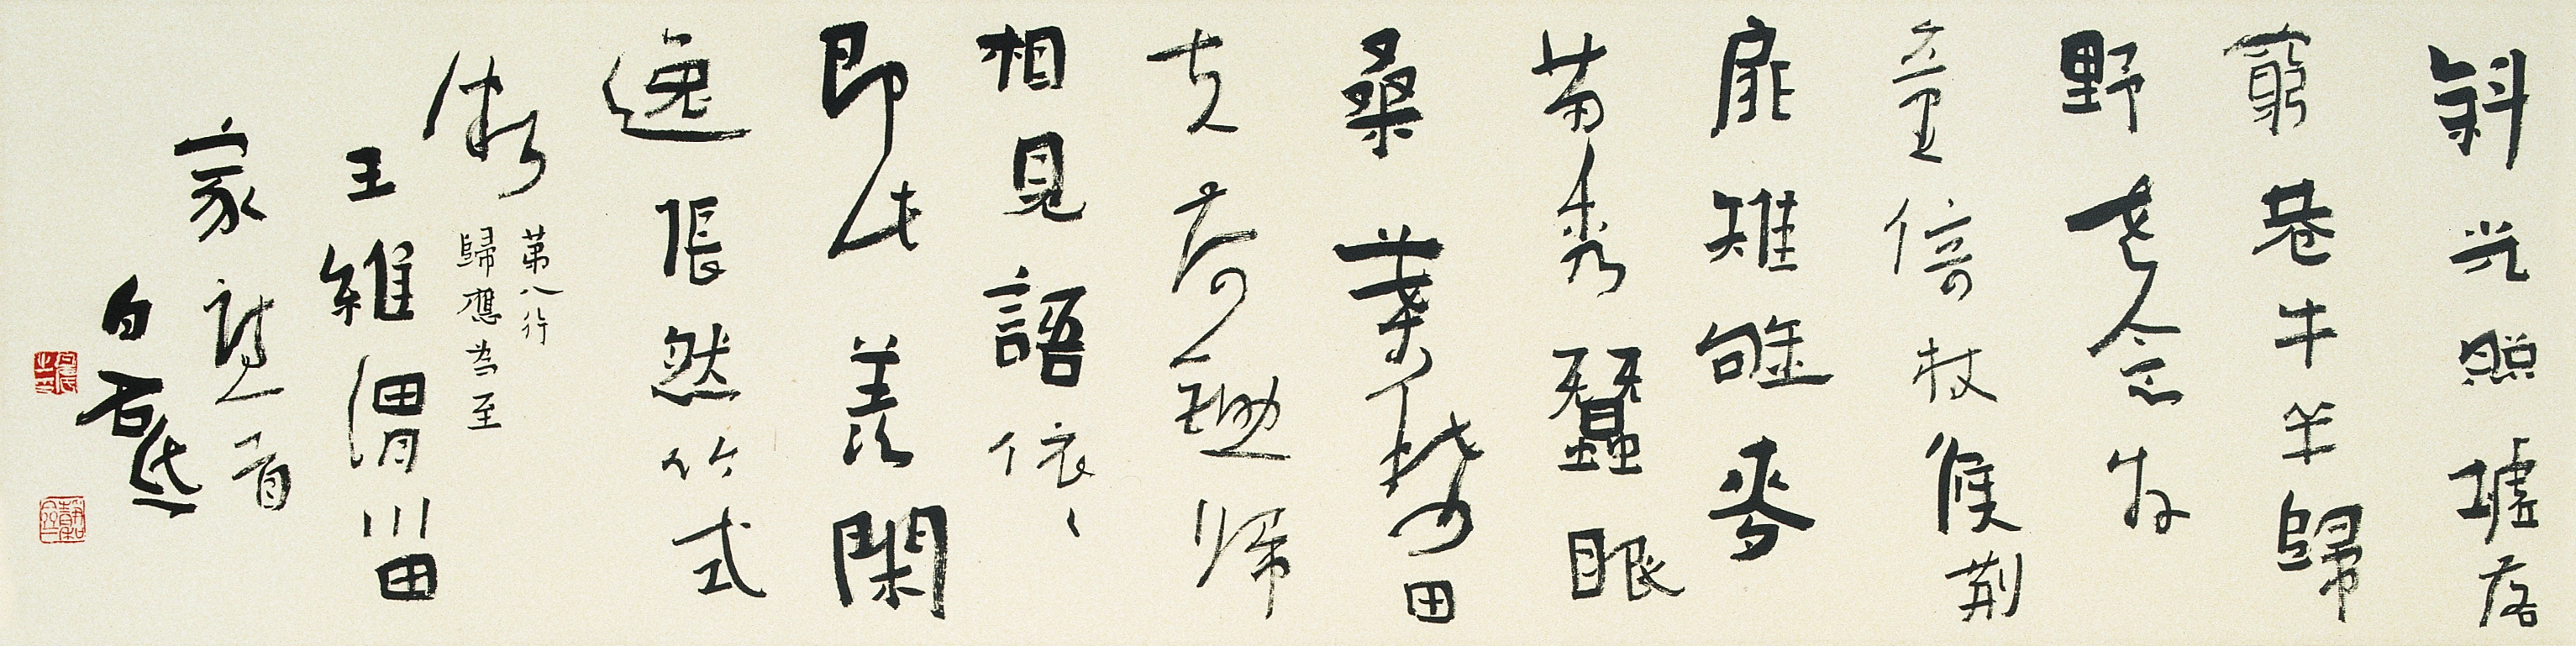 斜光照墟落
窮巷牛羊歸
野老念牧
童倚杖候荆
扉雉雊麥
苗秀蠶眠
桑葉稀田
夫荷鋤歸
相見語依依
即此羨閑
逸悵然吟式
微
第八行
歸應為至
王維渭川田
家詩一首
白石